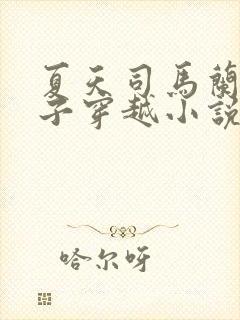 夏天司馬蘭
子穿越小說
哈尔呀